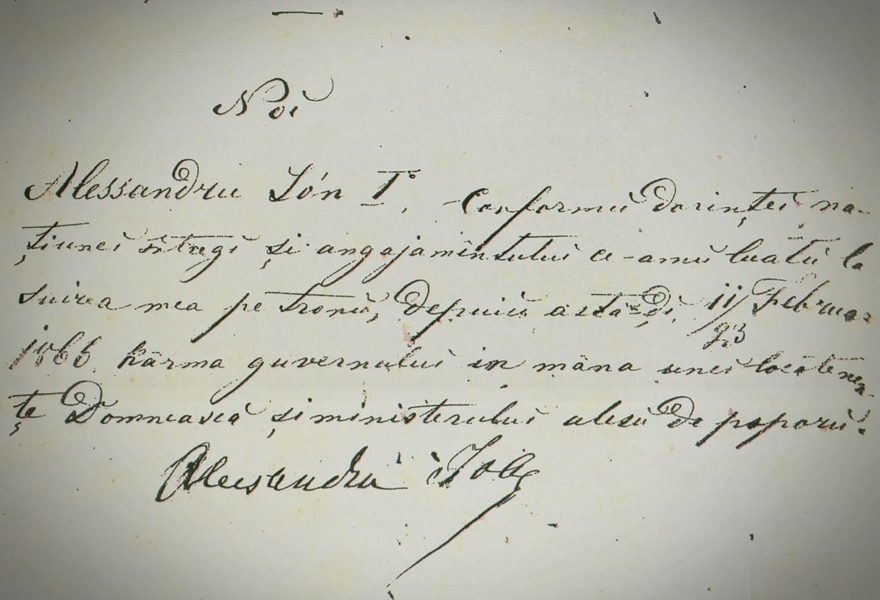 Noi
Alessandru Ión I°. Conformŭ Dorinței na-
țiunei ıntregĭ și angajamîntuluĭ ce-amŭ luatŭ la
suirea mea pe tronŭ, depuiŭ astă-Ḑĭ, 11/23 Februa:
1866 kârma guvernuluĭ in mâna unei locotenen-
țe Domnească și ministeruluĭ alesŭ De poporŭ.
Alessandru Ion